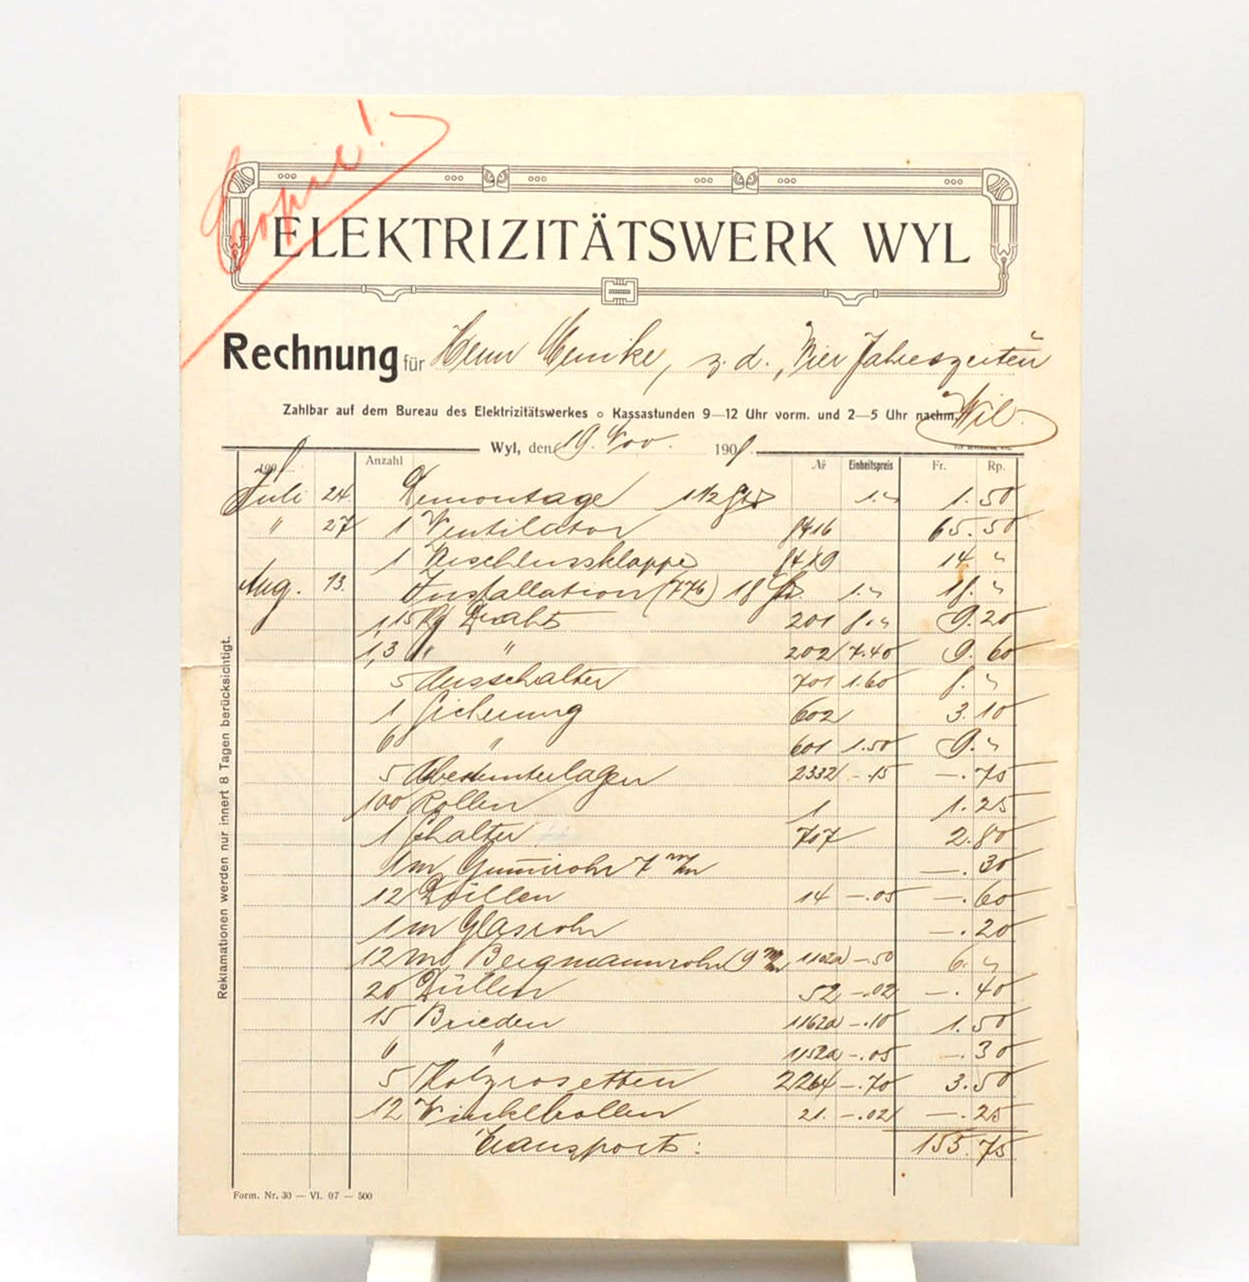 Copie!
ELEKTRIZITÄTSWERK WYL
Rechnung für Herrn z. d. „Vier Jahreszeiten
Zahlbar auf dem Bureau des Elektrizitätswerkes o Kassastunden 9—12 Uhr vorm. und 2—5 Uhr nachm.
Wil.
Wyl, den 19. Nov. 190
190 Anzahl Nr Einheitspreis Fr. Rp.
Juli 24. Demontage 1 1/2 1." 1. 50
" 27 1 Ventilator 8416 65. 50
1 8419 14 "
Aug. 13. Installation 18 1." 18. "
1,15 Kg Draht 201 8." 9. 20
1,3 " " 202 7.40 9. 60
5 Ausschalter 701 1.60 8. "
1 Sicherung 602 3. 10
6 " 601 1.50 9. "
5 2332 -.15 —. 75
100 Rollen 1 1. 25
1 Schalter 707 2. 80
1 m Gum̄irohr 7 m/m —. 30
12 Düllen 14 —.05 —. 60
1 m Glasrohr —. 20
12 m Bergmannrohr (9 m/m —.50 6. "
20 Düllen 52 —.02 —. 40
15 Brieden 1162a —.10 1. 50
6 " 1152a —.05 —. 30
5 Holzrosetten 2264 —.70 3. 50
12 Winkelrollen 21. —.02 —. 25
Transport: 155. 75
Reklamationen werden nur innert 8 Tagen berücksichtigt.
Form. Nr. 30 — VI. 07 — 500